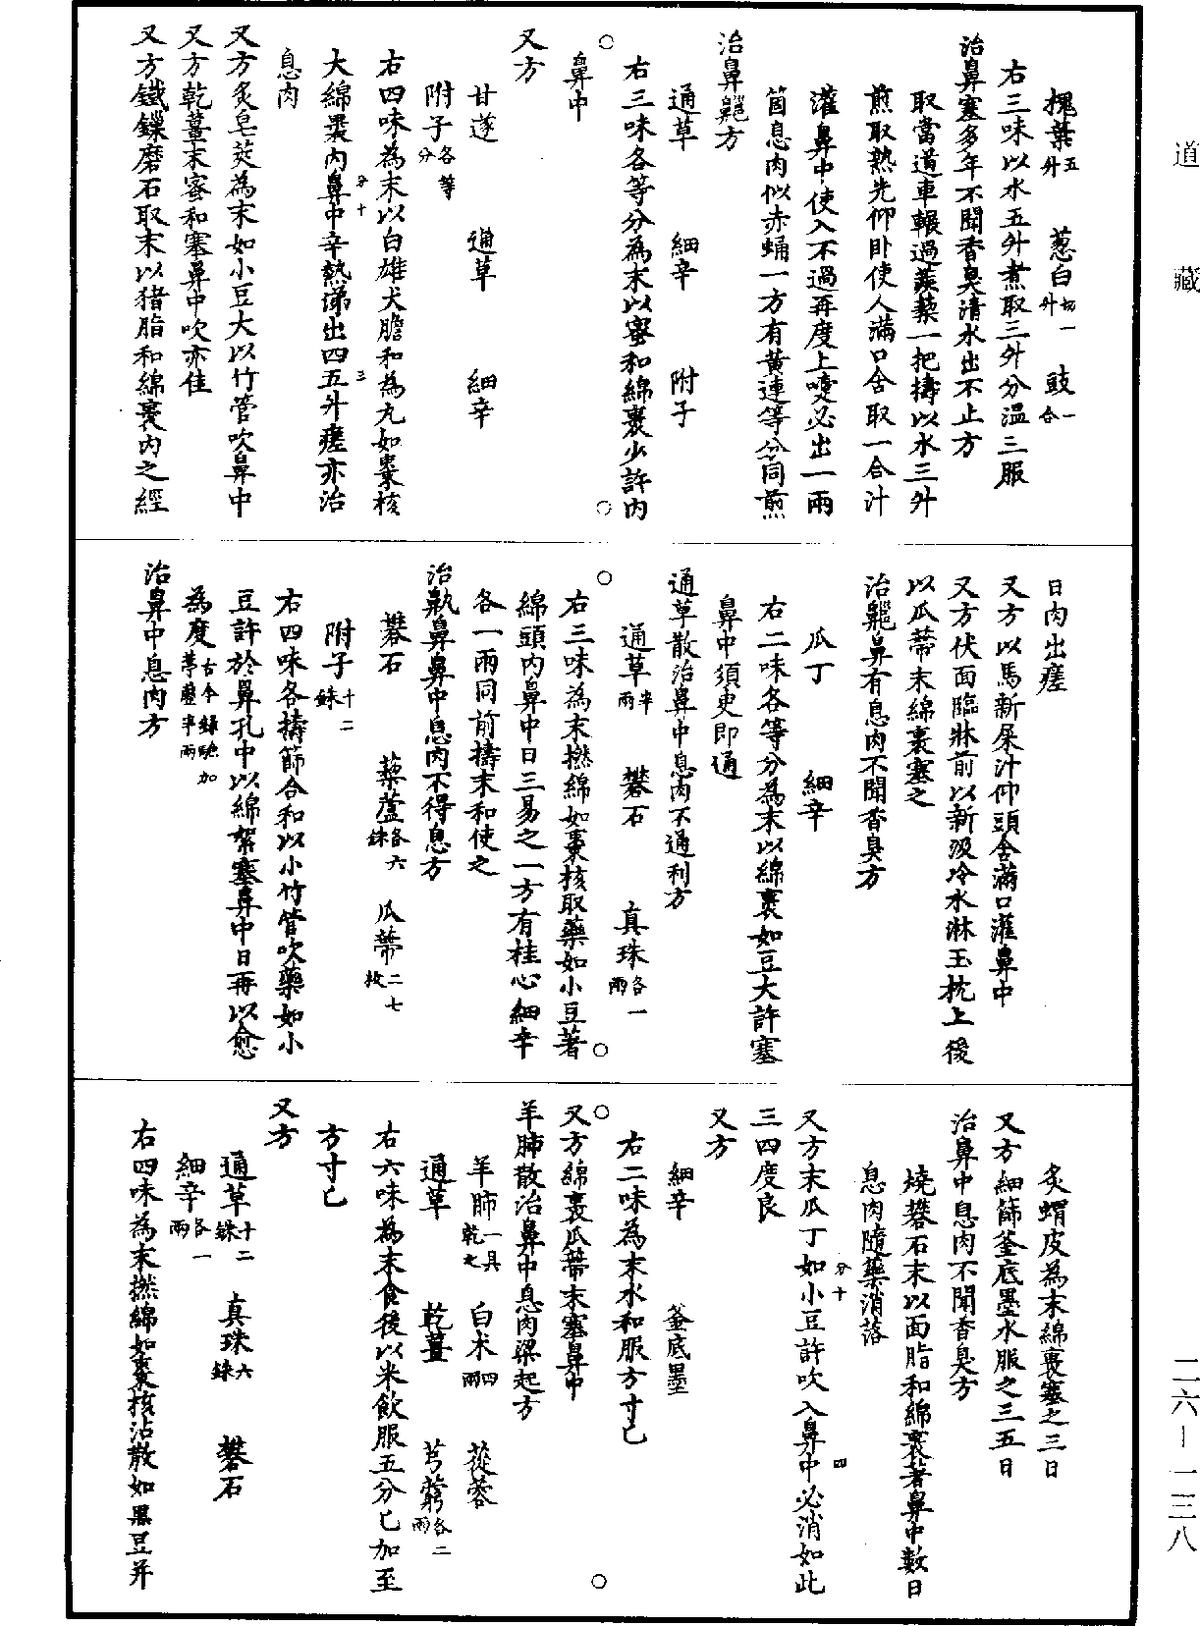 槐葉五升　葱白切一升　豉一合
右三味以水五升煮取三升分温三服
治鼻塞多年不聞香臭清水出不止方
取當道車輾過蒺藜一把擣以水三升
煎取熟先仰卧使人滿口含取一合汁
灌鼻中使入不過再度上嚏必出一兩
箇息肉似赤蛹一方有黄連等分同煎
治鼻齆方
通草　細辛　附子
右三味各等分為末以蜜和綿裹少許内
鼻中
又方
甘遂　通草　細辛
附子各等分
右四味為末以白雄犬膽和為丸如棗核
大綿裹内鼻中辛熱涕出四五升瘥亦治
息肉
又方炙皂莢為末如小豆大以竹管吹鼻中
又方乾薑末蜜和塞鼻中吹亦佳
又方鐵鏁磨石取末以猪脂和綿裹内之經
日肉出瘥
又方以馬新屎汁仰頭含滿口灌鼻中
又方伏面臨牀前以新汲冷水淋玉枕上後
以瓜蒂末綿裹塞之
治齆鼻有息肉不聞香臭方
瓜丁　細辛
右二味各等分為末以綿裹如豆大許塞
鼻中須臾即通
通草散治鼻中息肉不通利方
通草半兩　礬石　真珠各一兩
右三味為末撚綿如棗核取藥如小豆著
綿頭内鼻中日三易之一方有桂心細辛
各一兩同前擣末和使之
治鼽鼻鼻中息肉不得息方
礬石　藜蘆各六銖　瓜蒂二七枚
附子十二銖
右四味各擣篩合和以小竹管吹藥如小
豆許於鼻孔中以綿絮塞鼻中日再以愈
為度古今録驗加葶藶半兩
治鼻中息肉方
炙蝟皮為末綿裹塞之三日
又方細篩釜底墨水服之三五日
治鼻中息肉不聞香臭方
燒礬石末以面脂和綿裹著鼻中數日
息肉隨藥消落
又方末瓜丁如小豆許吹入鼻中必消如此
三四度良
又方
細辛　釜底墨
右二味為末水和服方寸匕
又方綿裹瓜蒂末塞鼻中
羊肺散治鼻中息肉梁起方
羊肺一具乾之　白术四兩　蓯蓉
通草　乾薑　芎藭各二兩
右六味為末食後以米飲服五分匕加至
方寸匕
又方
通草十二銖　真珠六銖　礬石
細辛各一兩
右四味為末撚綿如棗核沾散如黒豆并
分十
三
分十
四
道藏
二六－一三八